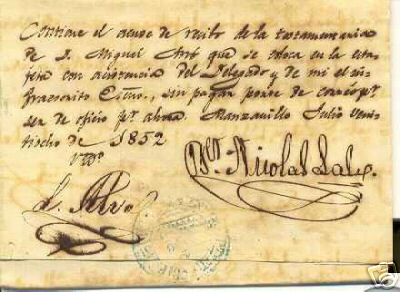 Contiene el acuso de recibo de la testamentaria
de D. Miguel que se coloca en la esta-
feta con asistencia del Delegado y de mi el in-
frascrito Esno., sin pagar porte de correo pr.
ser de oficio pr. ahora. Manzanillo Julio vein-
tiocho de 1852
Br. Nicolas
L.